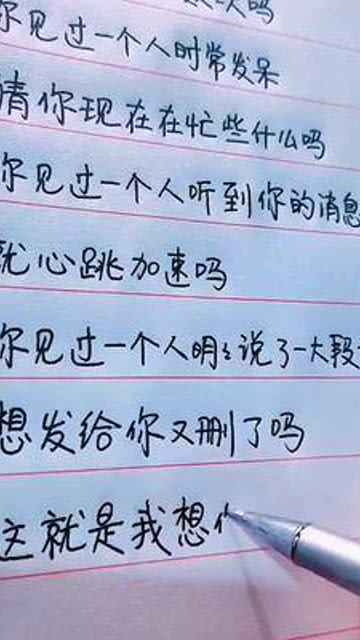 一次吗
你见过一个人时常发呆
猜你现在在忙些什么吗
你见过一个人听到你的消息
就心跳加速吗
你见过一个人明明说了一大段
想发给你又删了吗
这就是我想